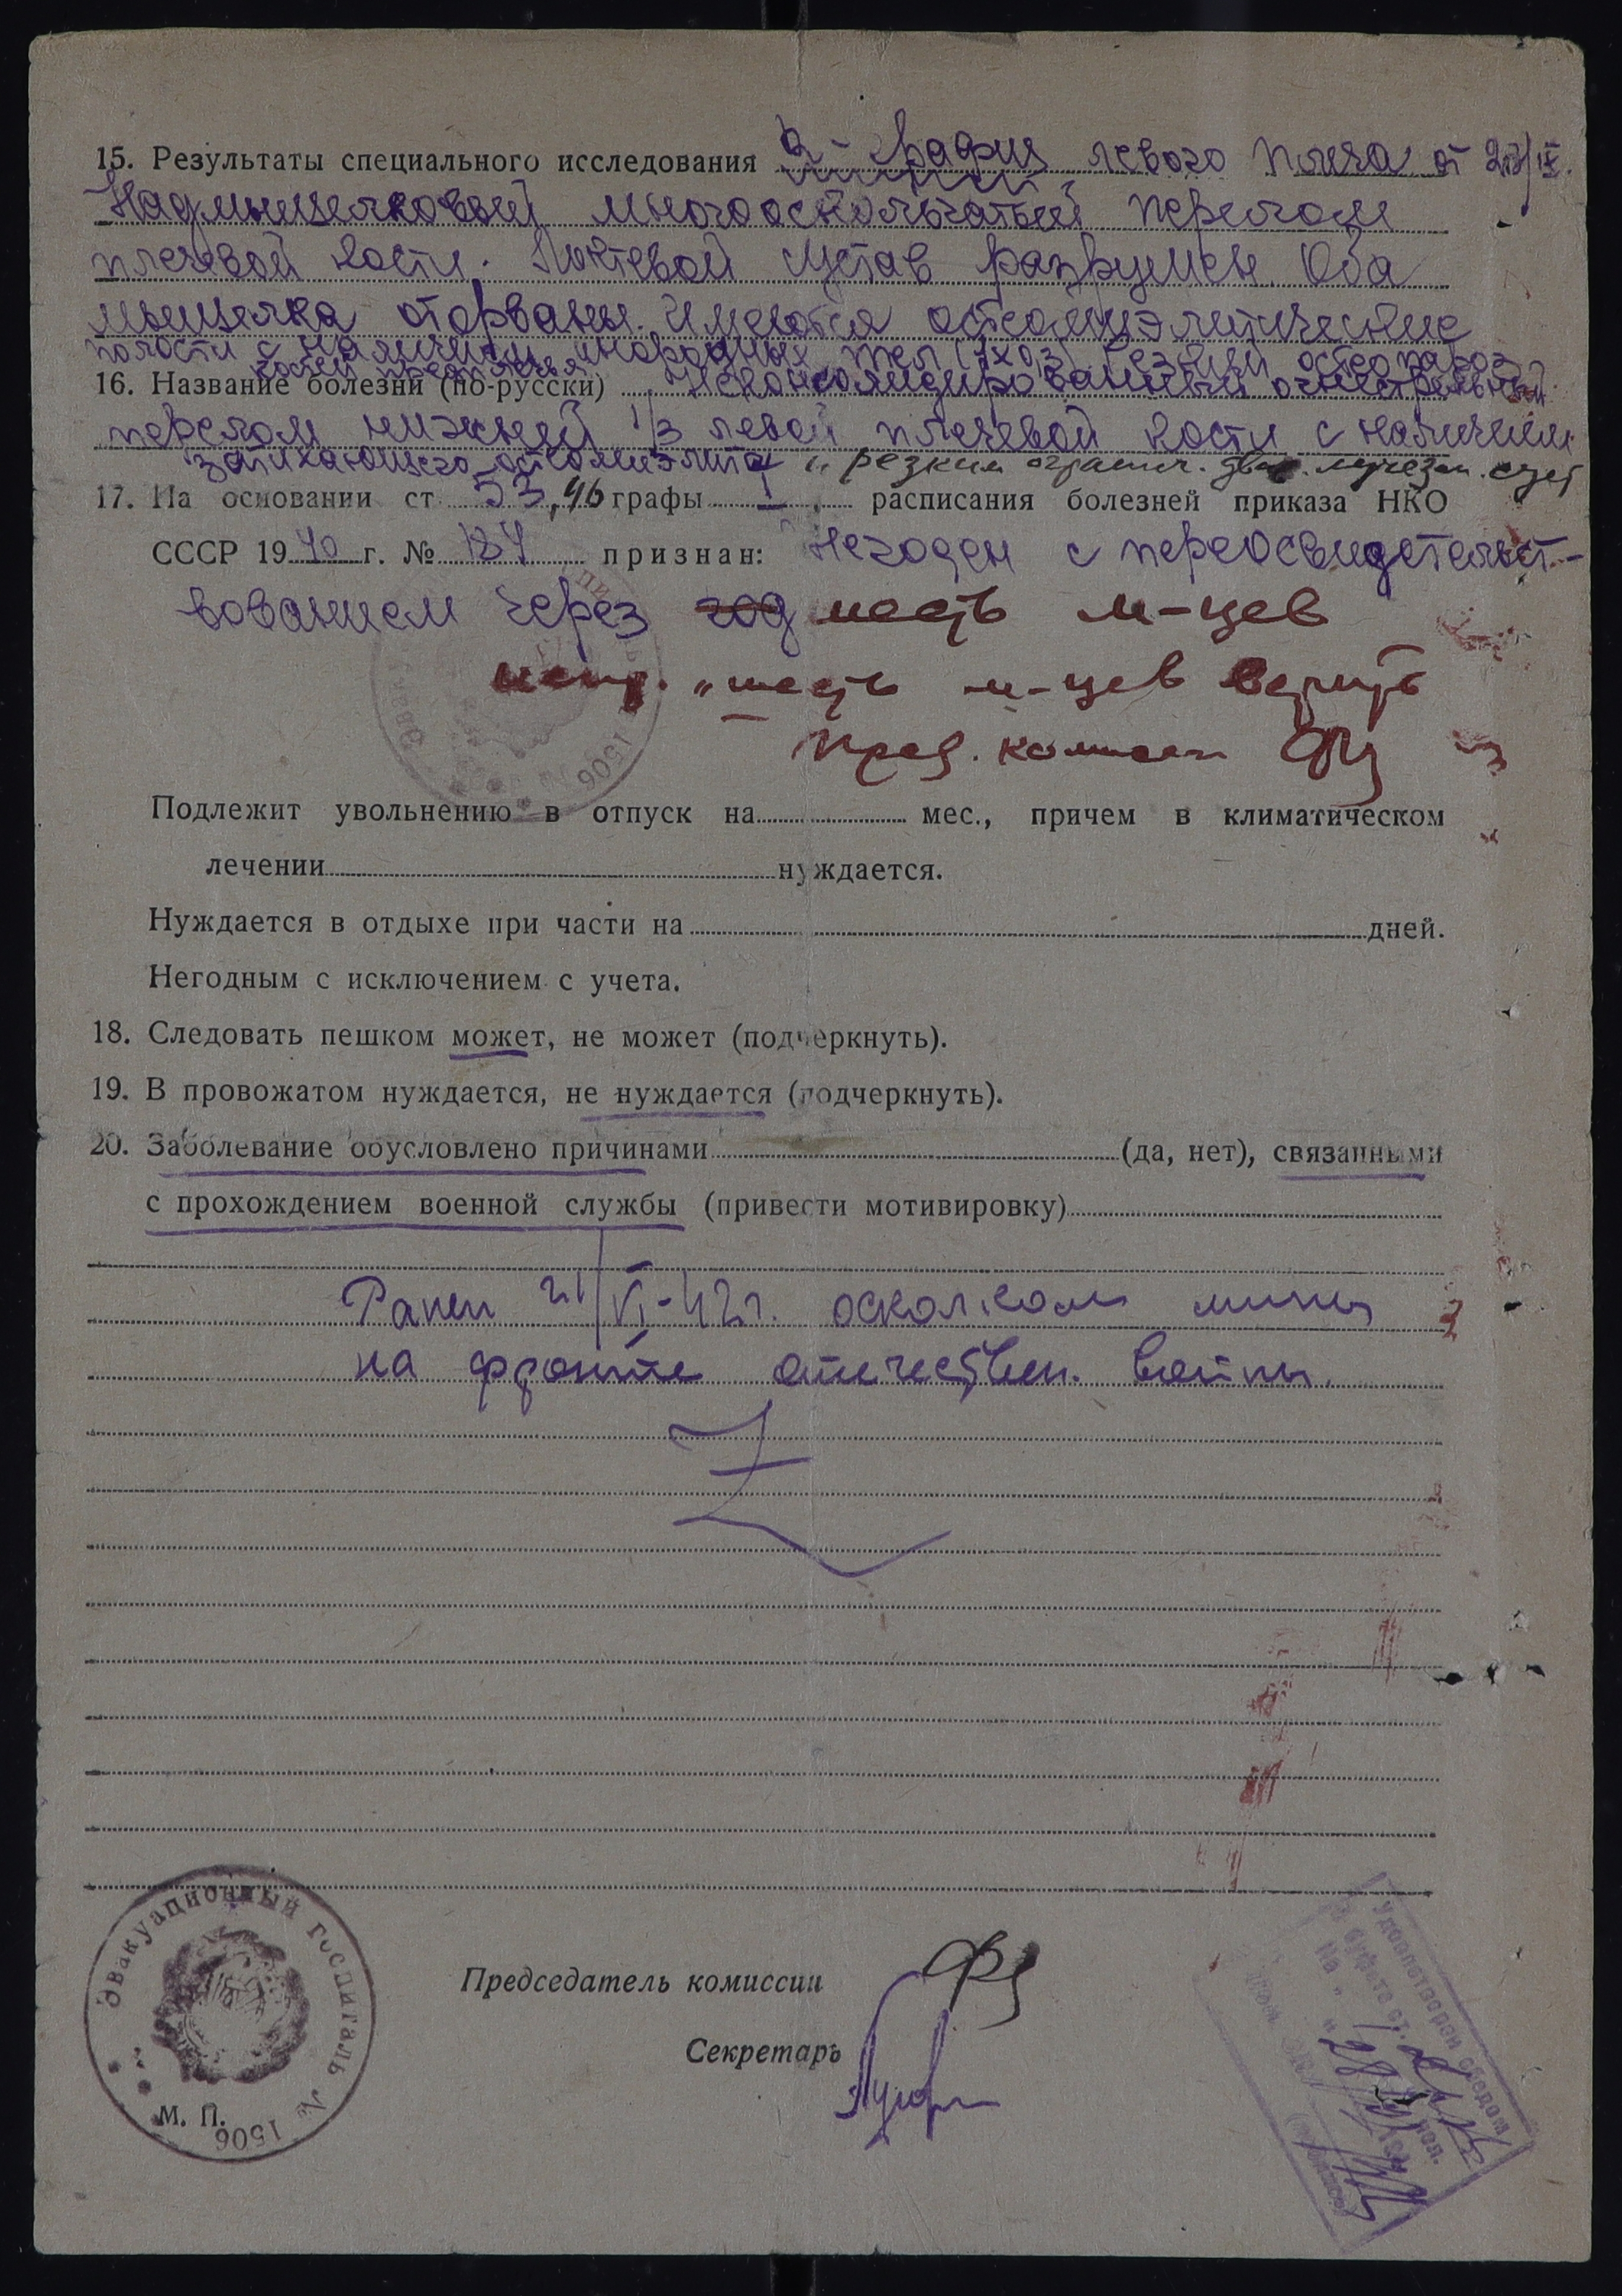 15. Результаты специального исследования R-графия левого плеча от 23/IX.
Надмыщелковый многооскольчатый перелом
плечевой кости. Локтевой сустав разрушен. Оба
мыщелка оторваны. Имеются остеомиэлитические
полости с наличием инородных тел (7x03) Резкий остеопароз
костей предплечья
16. Название болезни (по-русски) Неконсолидированный огнестрельный
перелом нижней 1/3 левой плечевой кости с наличием
затихающего остеомиэлита и резким огранич. движ. лучезап. суст
17. На основании ст. 53, 46 графы I расписания болезней приказа НКО
СССР 1940 г. № 184 признан: Негоден с переосвидетельст-
вованием через год шесть м-цев
испр. "шесть м-цев верить
Пред. комисси
Подлежит увольнению в отпуск на мес., причем в климатическом
лечении нуждается.
Нуждается в отдыхе при части на дней.
Негодным с исключением с учета.
18. Следовать пешком может, не может (подчеркнуть).
19. В провожатом нуждается, не нуждается (подчеркнуть).
20. Заболевание обусловлено причинами (да, нет), связанными
с прохождением военной службы (привести мотивировку)
Ранен 21/VI-42г. осколком мины
на фронте отечествен. войны.
Председатель комиссии
Секретарь
М. П.
Эвакуационный госпиталь № 1506